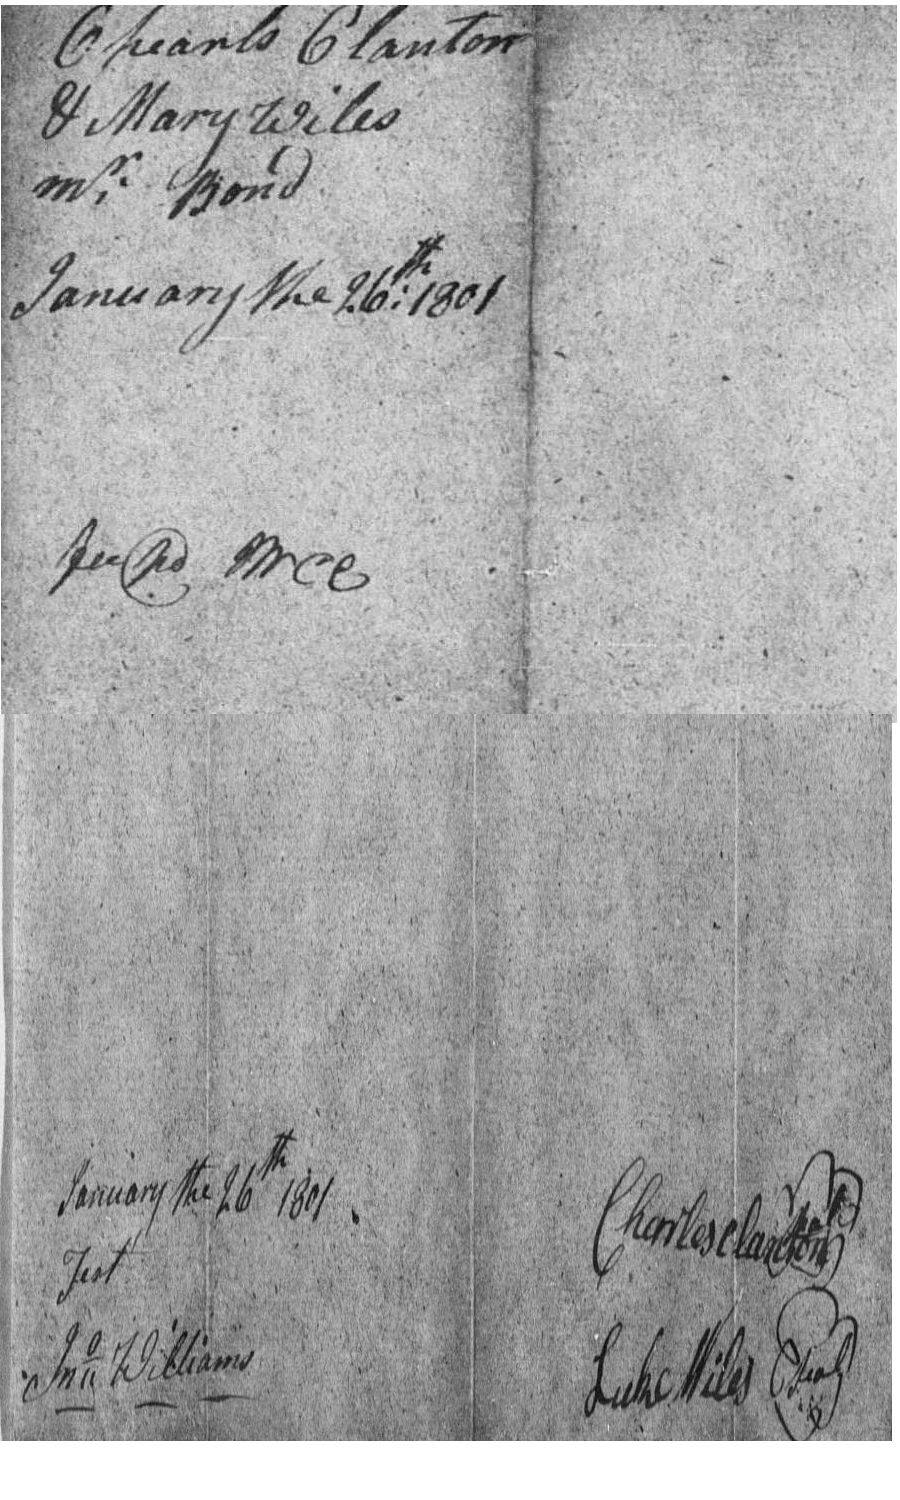 Chearls Clanton
& Mary Wiles
mr. Bond
January the 26th: 1801
fee pd
January the 26th 1801.
Test
Jno. Williams
Charles Clanton
Luke Wiles (Seal)